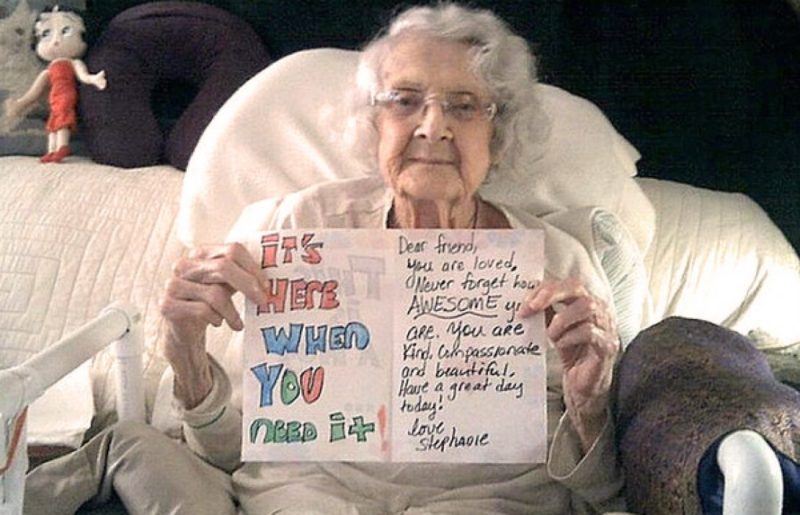 IT'S
HERE
WHEN
YOU
NEED it!
Dear friend,
You are loved.
Never forget how
AWESOME
are. You are
Kind, Compassionate
and beautiful.
Have a great day
today!
love
Stephanie